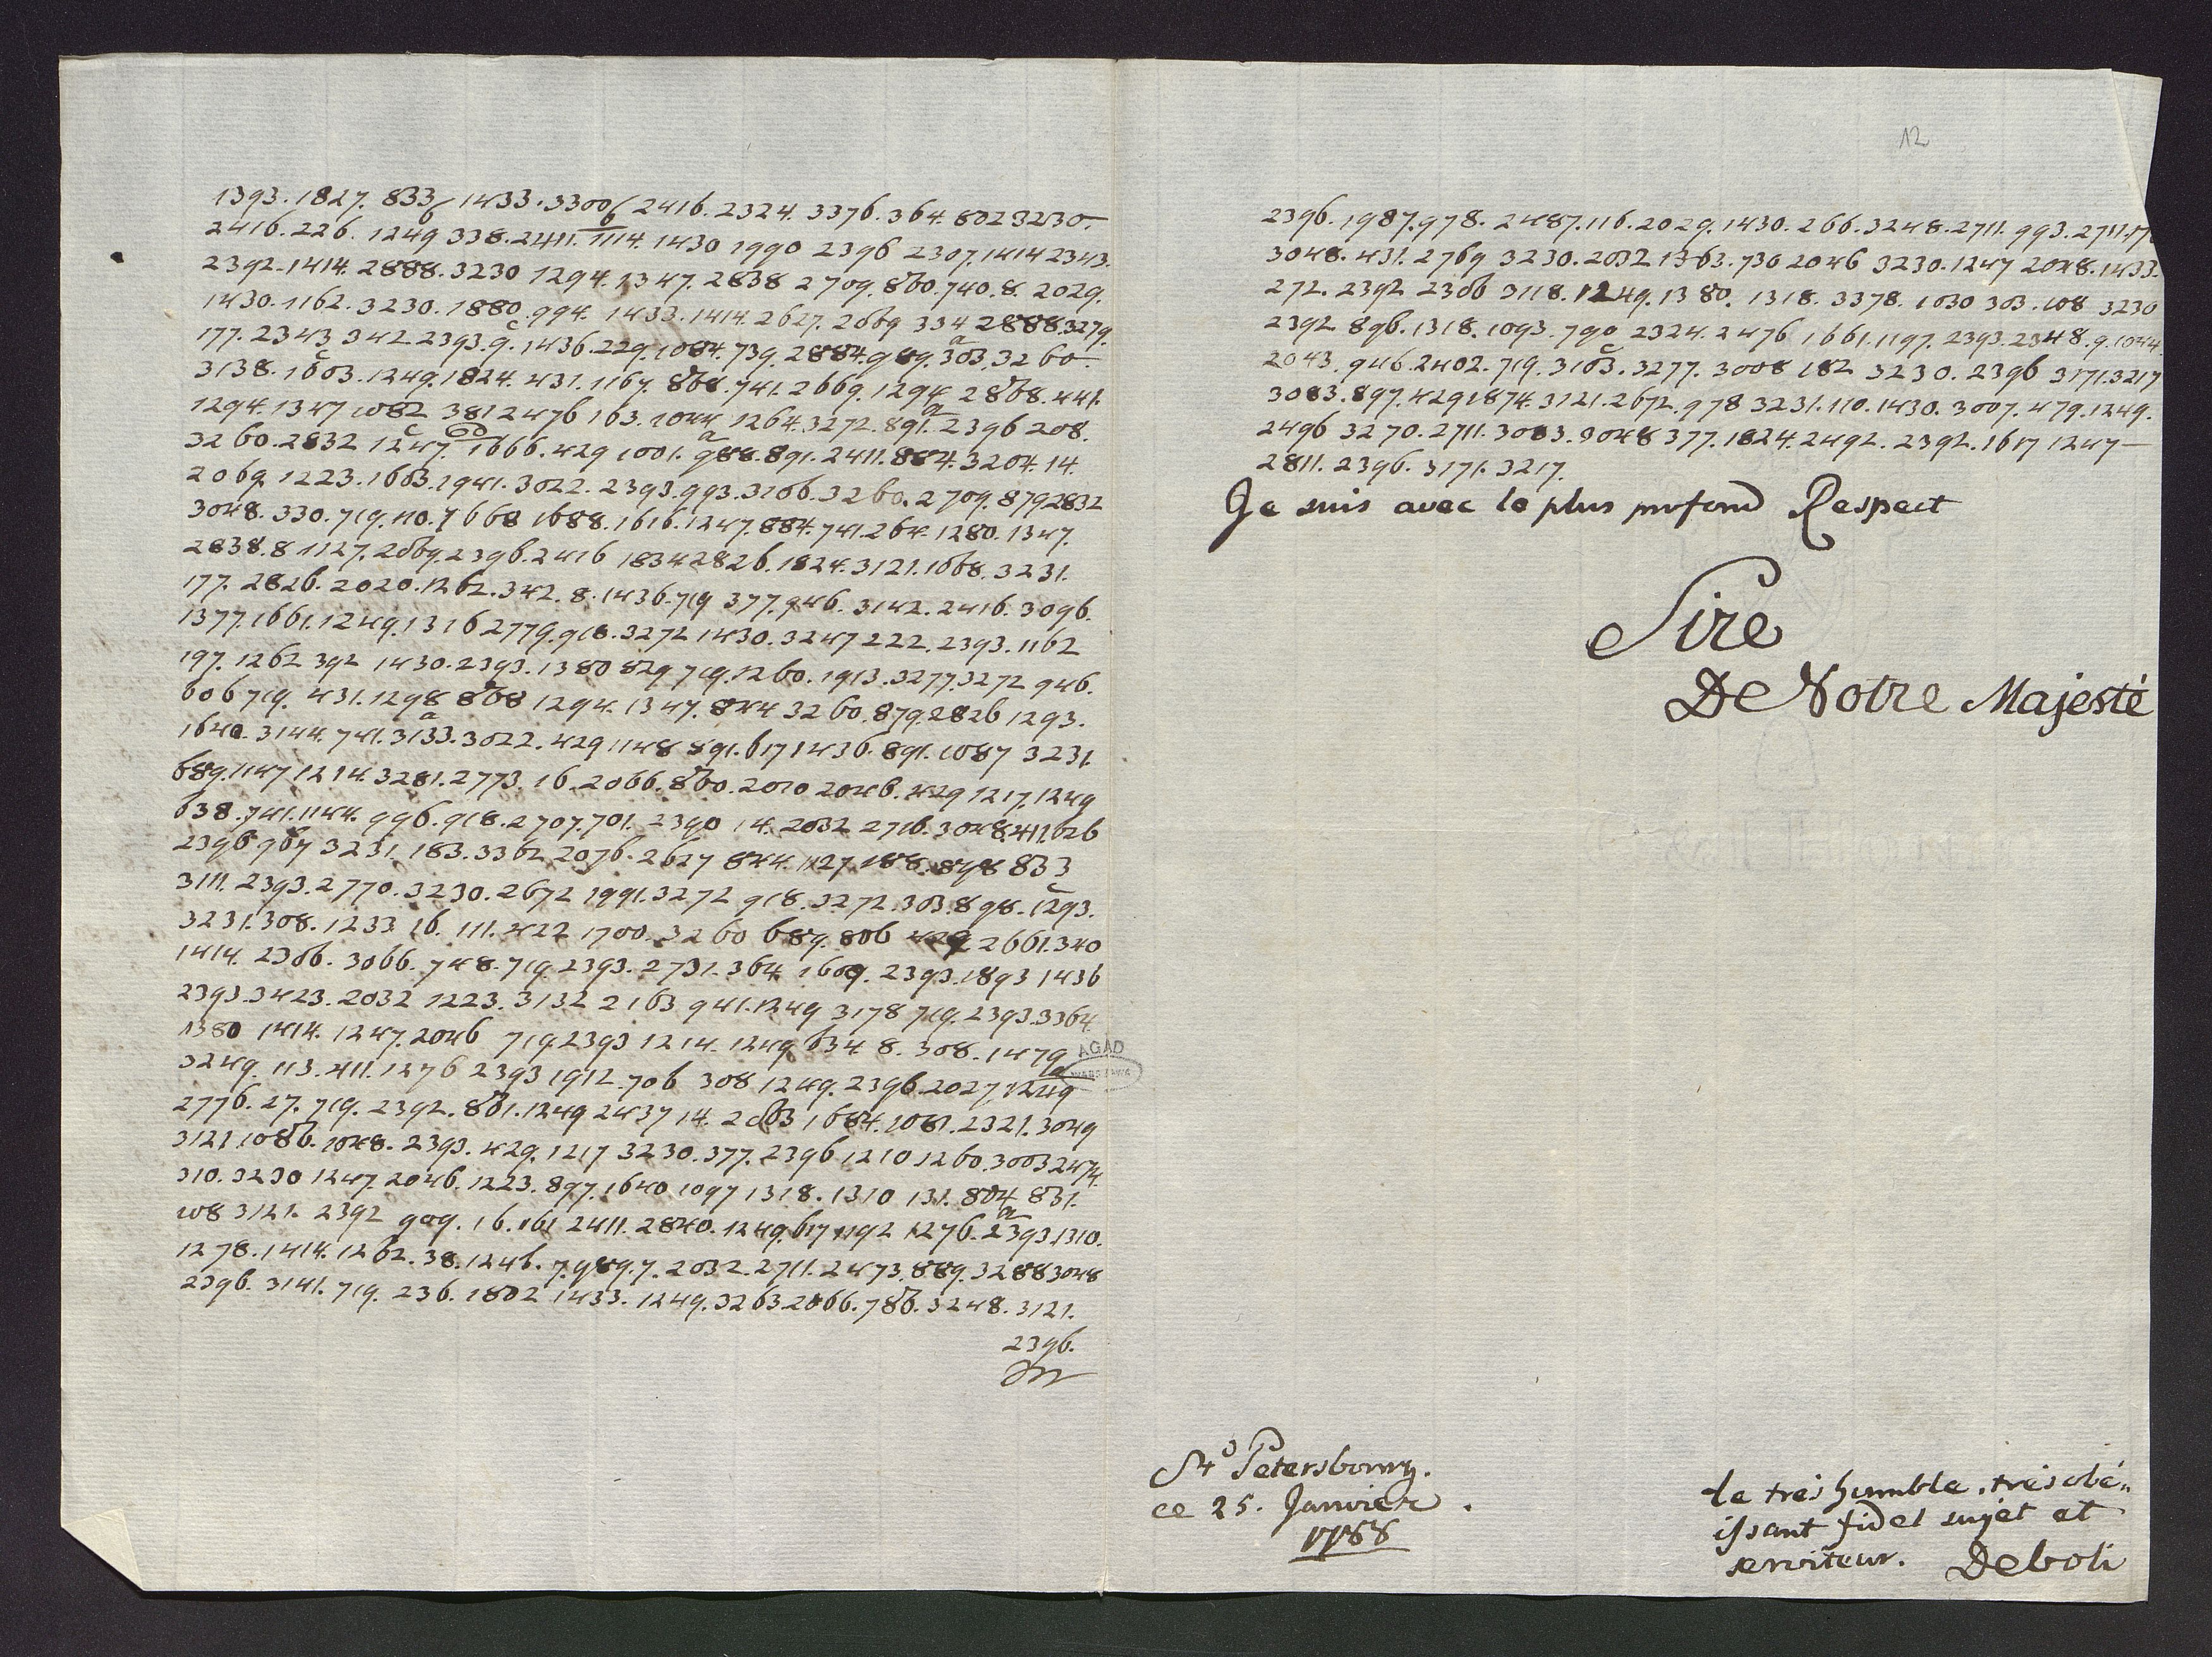 1393. 1827. 833/ 1433. 3300/ 2416. 2324. 3376. 364. 802 3230.
2416. 226. 1249 338. 2411. 1114. 1430 1990 2396 2307. 1414 2343.
2392. 1414. 2888. 3230 1294. 1347. 2838 2709. 860. 740. 8. 2029.
1430. 1162. 3230. 1880. 994. 1433. 1414. 2627. 2669 334 2888. 3279.
177. 2343 342. 2393. 9. 1436. 229. 1084. 739. 2884. 989. 303. 3260.
3138. 1603. 1249. 1824. 431. 1167. 868. 741. 2669. 1294. 2868. 441.
1294. 1347 1082 381 2476 163. 1044 1264. 3272. 891. 2396 208.
3260. 2832 1247. 1666. 429 1001. 988. 891. 2411. 884. 3204. 14.
2069 1223. 1603. 1941. 3022. 2393. 993. 3106. 3260. 2709. 879 2832
3048. 330. 719. 110. 7 668 1688. 1616. 1247. 884. 741. 264. 1280. 1347.
2838. 8 1127. 2069. 2396. 2416 1834 2826. 1824. 3121. 1668. 3231.
177. 2826. 2020. 1262. 342. 8. 1436. 719 377. 946. 3142. 2416. 3096.
1377. 1661. 1249. 1316 2779. 918. 3272 1430. 3247 222. 2393. 1162
197. 1262 392 1430. 2393. 1380 829 719. 1260. 1913. 3277. 3272 946.
606 719. 431. 1298 868 1294. 1347. 844 3260. 879. 2826 1293.
1640. 3144. 741. 3133. 3022. 429 1148 891. 617 1436. 891. 1087 3231.
689. 1147 1214. 3281. 2773. 16. 2066. 860. 2010 2046. 429 1217. 1249
638. 741. 1144. 996. 918. 2707. 701. 2390 14. 2032 2716. 3048. 411. 626
2396 767 3231. 183. 3362 2076. 2627 844. 1127. 188. 898 833
3111. 2393. 2770. 3230. 2672 1991. 3272 918. 3272. 303. 898. 1293.
3231. 308. 1233 16. 111. 422 1700. 3260 689. 806 429. 2661. 340
1414. 2306. 3066. 748. 719. 2393. 2731. 364 1609. 2393. 1893 1436
2393. 3423. 2032 1223. 3132 2163 941. 1249 3178 719. 2393. 3364.
1380 1414. 1247. 2046 719 2393 1214. 1249 634 8. 308. 1479
3249. 113. 411. 1276 2393 1912. 706 308 1249. 2396. 2027. 1249
2776. 27. 719. 2392. 861. 1249 2437 14. 2663 1684. 1081. 2321. 3049
3121 1086. 1048. 2393. 429. 1217 3230. 377. 2396 1210 1260. 3003 2474.
310. 3230 1247. 2046. 1223. 897. 1640 1097 1318. 1310 131. 804 831.
108 3121. 2392 909. 16. 161 2411. 2840. 1249. 617 1192 1276. 2393. 1310.
1278. 1414. 1262. 38. 1246. 7. 989. 7. 2032. 2711. 2473. 889. 3288 3048
2396. 3141. 719. 236. 1802 1433. 1249. 3263. 2066. 786. 3248. 3121.
2396.
12
2396. 1987. 978. 2487. 116. 2029. 1430. 266. 3248. 2711. 993. 2711.
3048. 431. 2769 3230. 2032 1363. 730 2046 3230. 1247 2048. 1433.
272. 2392 2306 3118. 1249. 1380. 1318. 3378. 1030 303. 108 3230
2392 896. 1318. 1093. 790 2324. 2476 1661. 1197. 2393. 2348. 9. 1044.
2043. 946. 2402. 719. 3103. 3277. 3008 182 3230. 2396 3171. 3217
3083. 897. 429 1874. 3121. 2672. 978 3231. 110. 1430. 3007. 479. 1249.
2496 3270. 2711. 3083. 3048 377. 1824. 2492. 2392. 1617 1247—
2811. 2396. 3171. 3217.
Je suis avec le plus profond Respect
Sire
De Votre Majesté
AGAD
WARSZAWA
St Petersbourg.
ce 25. Janvier.
1788
le très humble, très obé„
issant fidel sujet et
serviteur. Deboli